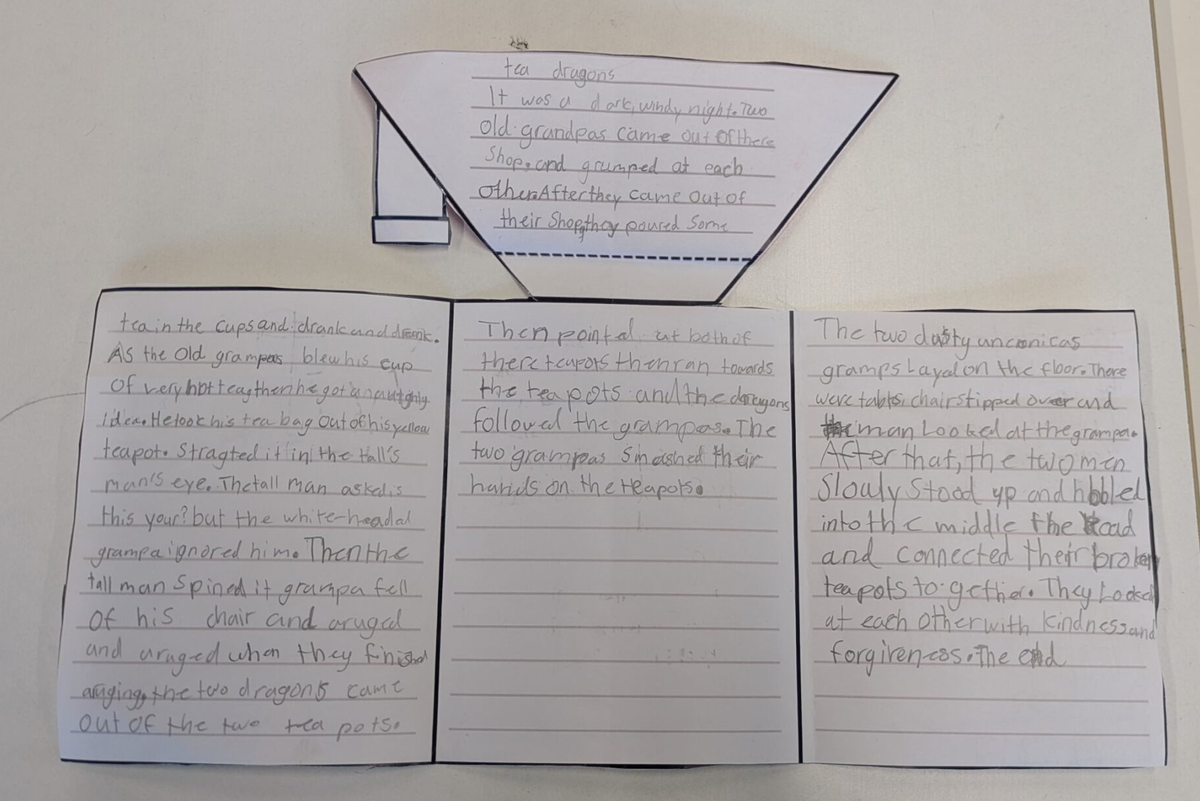 tea dragons
It was a dark, windy night. Two
old grandpas came out of there
Shop. and grumped at each
other. After they came out of
their Shop, they poured Some
tea in the cups and drank and drank.
As the old grampas blew his cup
of very hot tea, then he got a naughty
idea. He took his tea bag out of his yellow
teapot. Stragted it in the tall's
man's eye. The tall man asked is
this your? but the white-headed
grampa ignored him. Then the
tall man Spined it grampa fell
of his chair and aruged
and aruged when they finished
aruging, the two dragons came
out of the two tea pots.
Then pointed at both of
there teapots then ran towards
the tea pots and the dragons
followed the grampas. The
two grampas Smashed their
hands on the teapots.
The two dusty
gramps Layed on the floor. There
were tabls, chairs tipped over and
man Looked at the grampa.
After that, the two men
Slowly Stood up and hobled
into the middle the Road
and connected their broken
teapots to gether. They Looked
at each other with kindness and
forgireness. The end